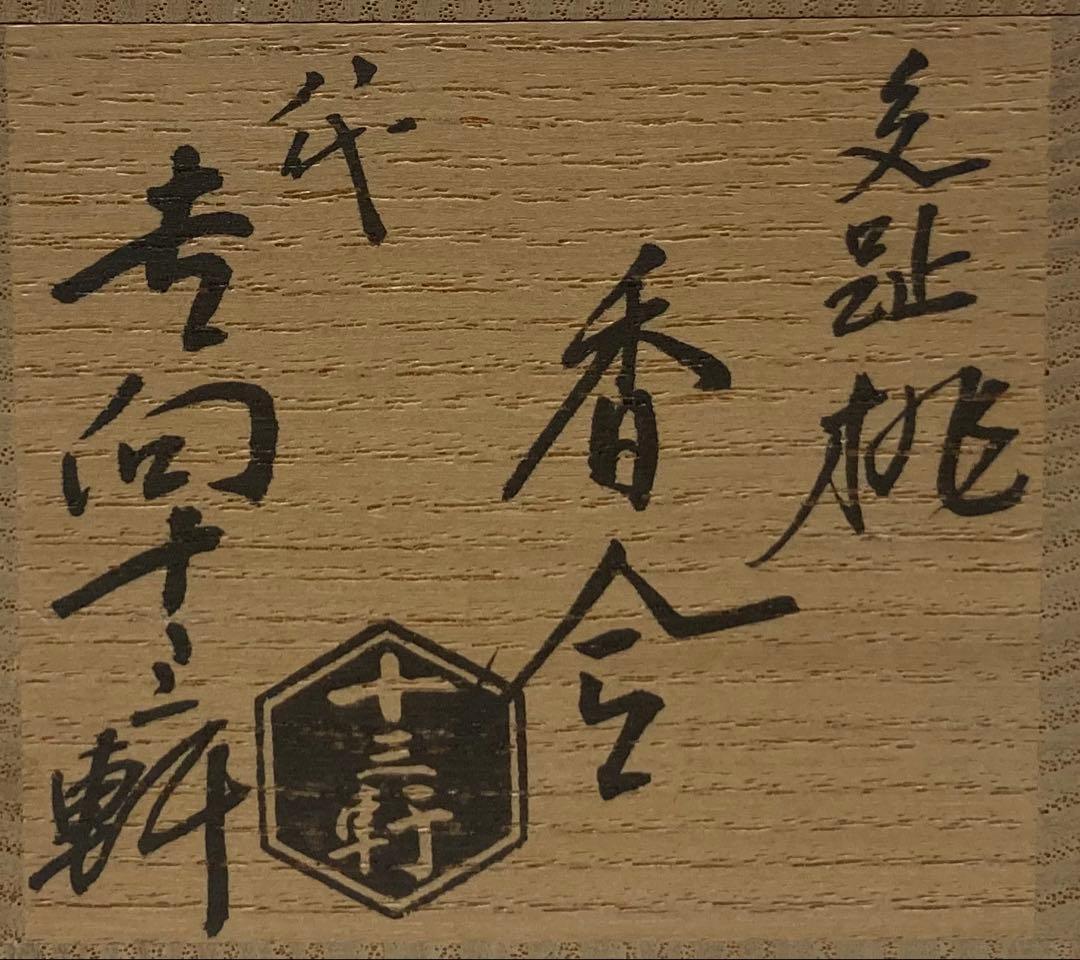 交趾桃
香合
八代
吉向十三軒
十三軒